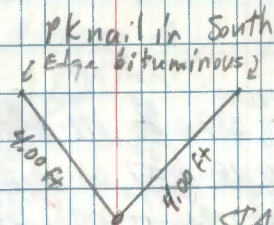 PK nail in South
Edge bituminous
4.00 ft
4.00 ft
STA